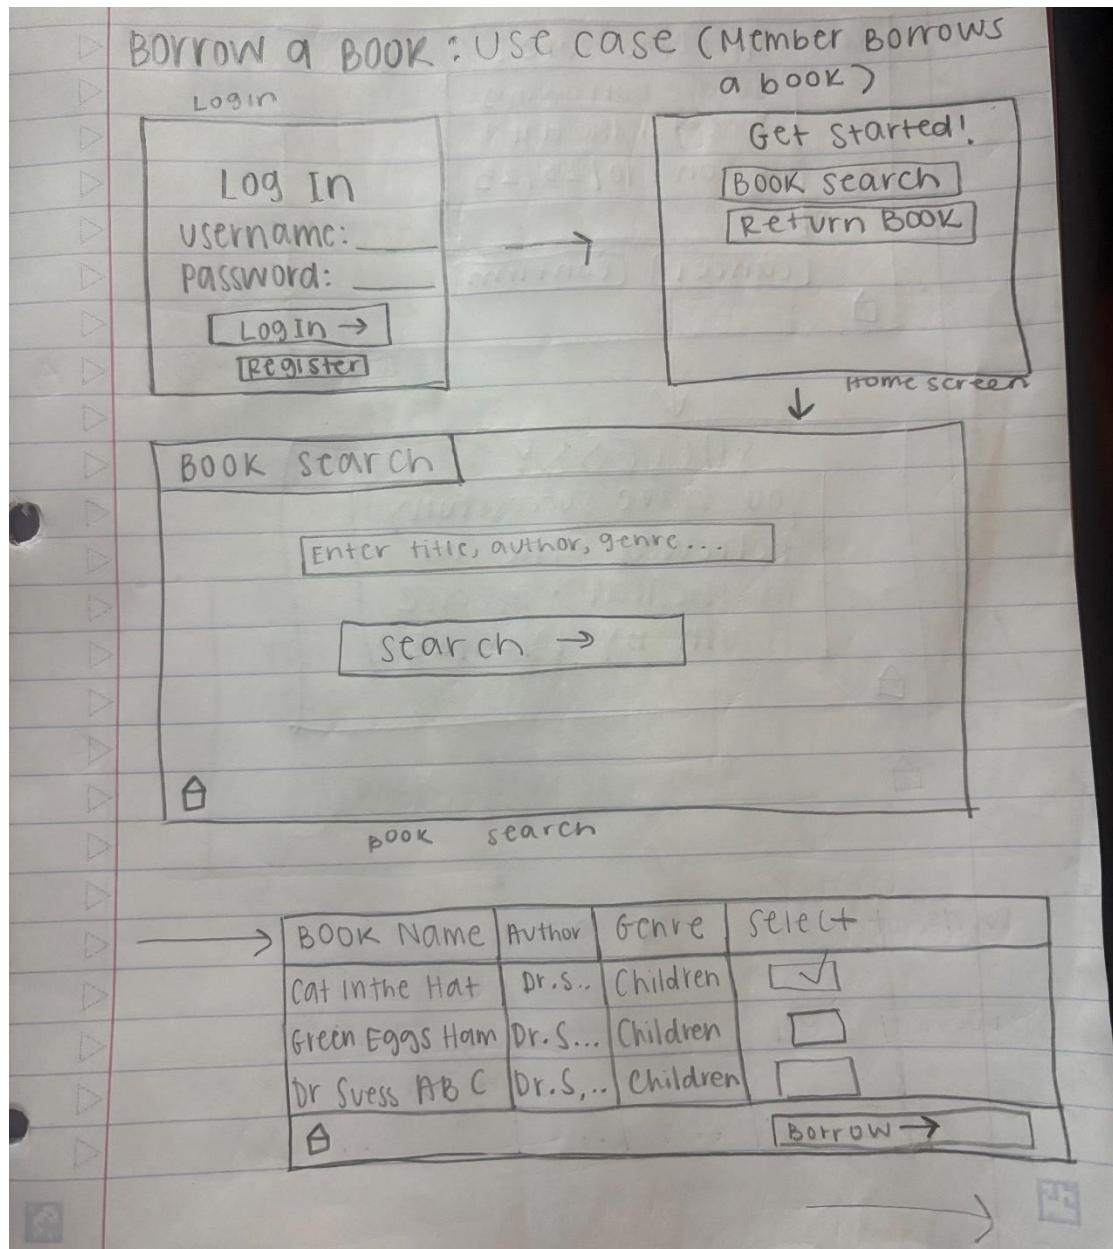 Borrow a Book : Use case (Member Borrows
a book)
Login
Log In
username: ____
password: ____
Log In →
Register
Get Started!
Book search
Return Book
Home screen
Book search
Enter title, author, genre...
search →
Book search
Book Name Author Genre select
Cat inthe Hat Dr.S.. Children
Green Eggs Ham Dr. S... Children
Dr Suess ABC Dr.S,.. Children
Borrow →